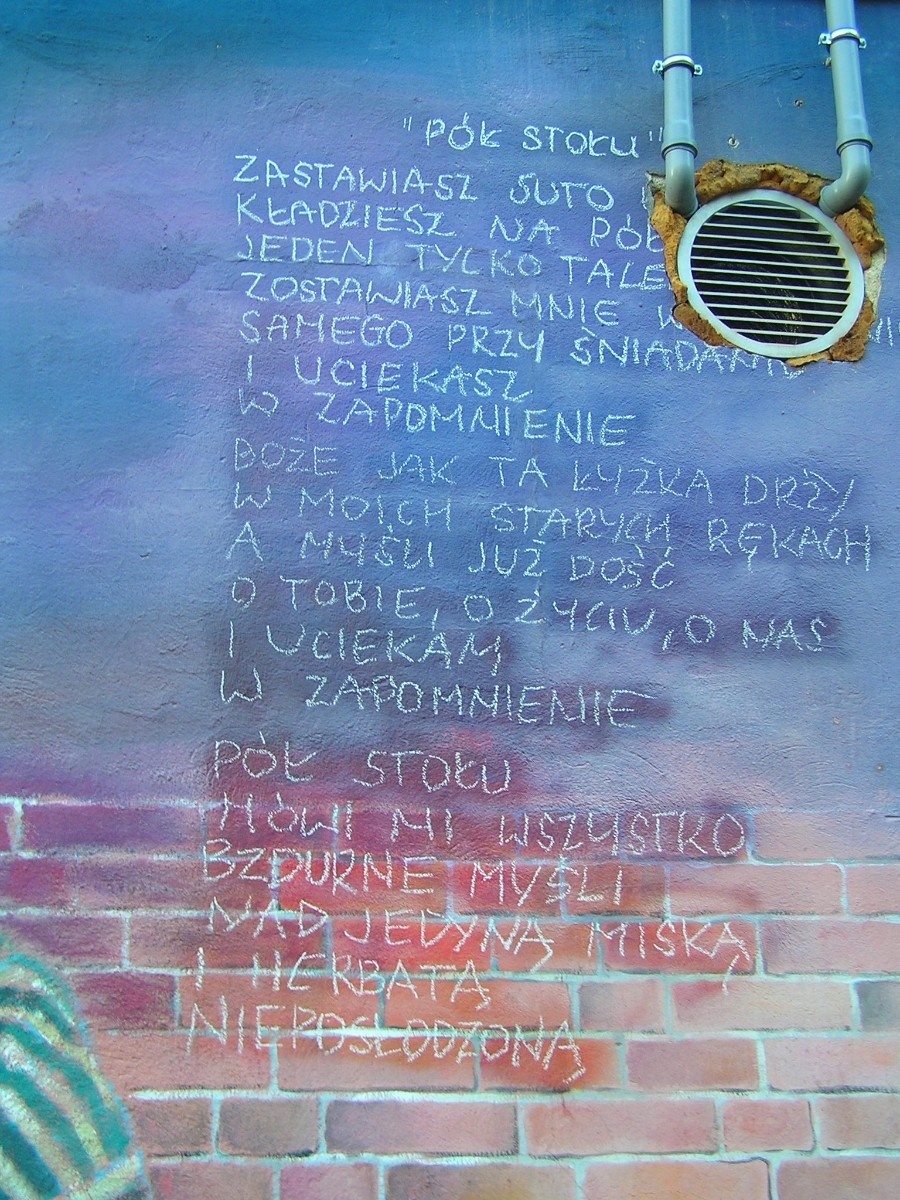 "PÓŁ STOŁU"
ZASTAWIASZ SUTO
KŁADZIESZ NA PÓŁ
JEDEN TYLKO TALE
ZOSTAWIASZ MNIE W
SAMEGO PRZY ŚNIADANIU
I UCIEKASZ
W ZAPOMNIENIE
BOŻE JAK TA ŁYŻKA DRŻY
W MOICH STARYCH RĘKACH
A MYŚLI JUŻ DOŚĆ
O TOBIE, O ŻYCIU, O NAS
I UCIEKAM
W ZAPOMNIENIE
PÓŁ STOŁU
MÓWI MI WSZYSTKO
BZDURNE MYŚLI
NAD JEDYNĄ MISKĄ
I HERBATĄ
NIEPOSŁODZONĄ